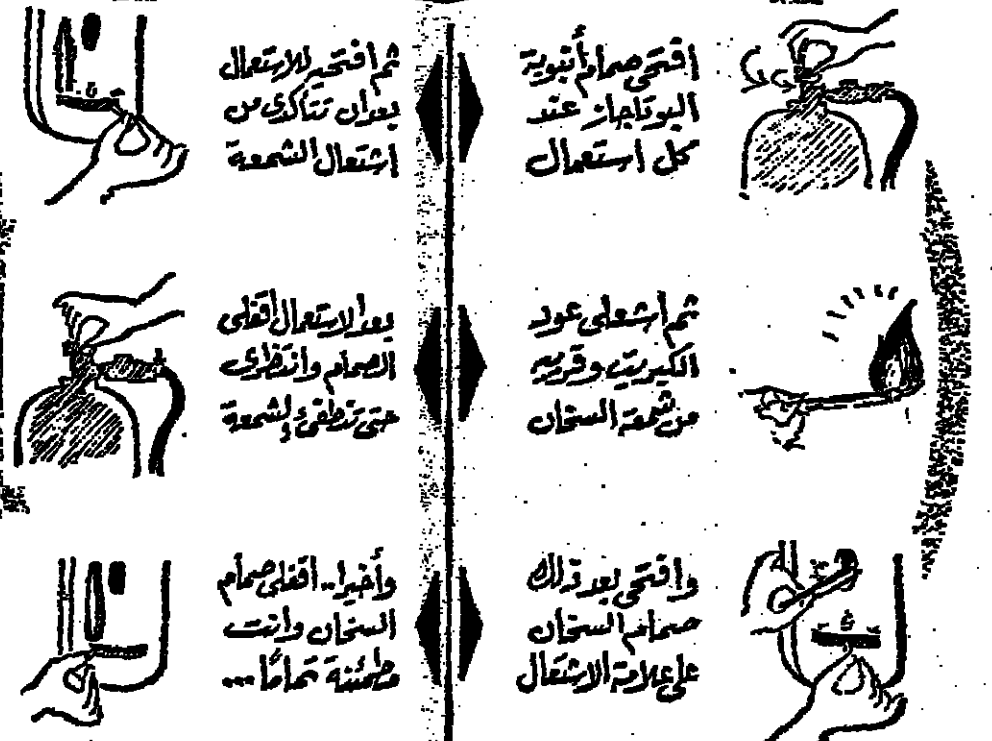 افتحى صمام أنبوبة
البوتاجاز عند
كل استعمال
ثم اشعلى عود
الكبريت وقربيه
من شمعة السخان
وافتحى بعد ذلك
صمام السخان
على علامة الاشتعال
ثم افتحيه للاستعمال
بعد أن تتأكدى من
اشتعال الشمعة
بعد الاستعمال أقفلى
الصمام وانتظرى
حتى تنطفئ الشمعة
وأخيرا.. اقفلى صمام
السخان وأنت
مطمئنة تماما ...